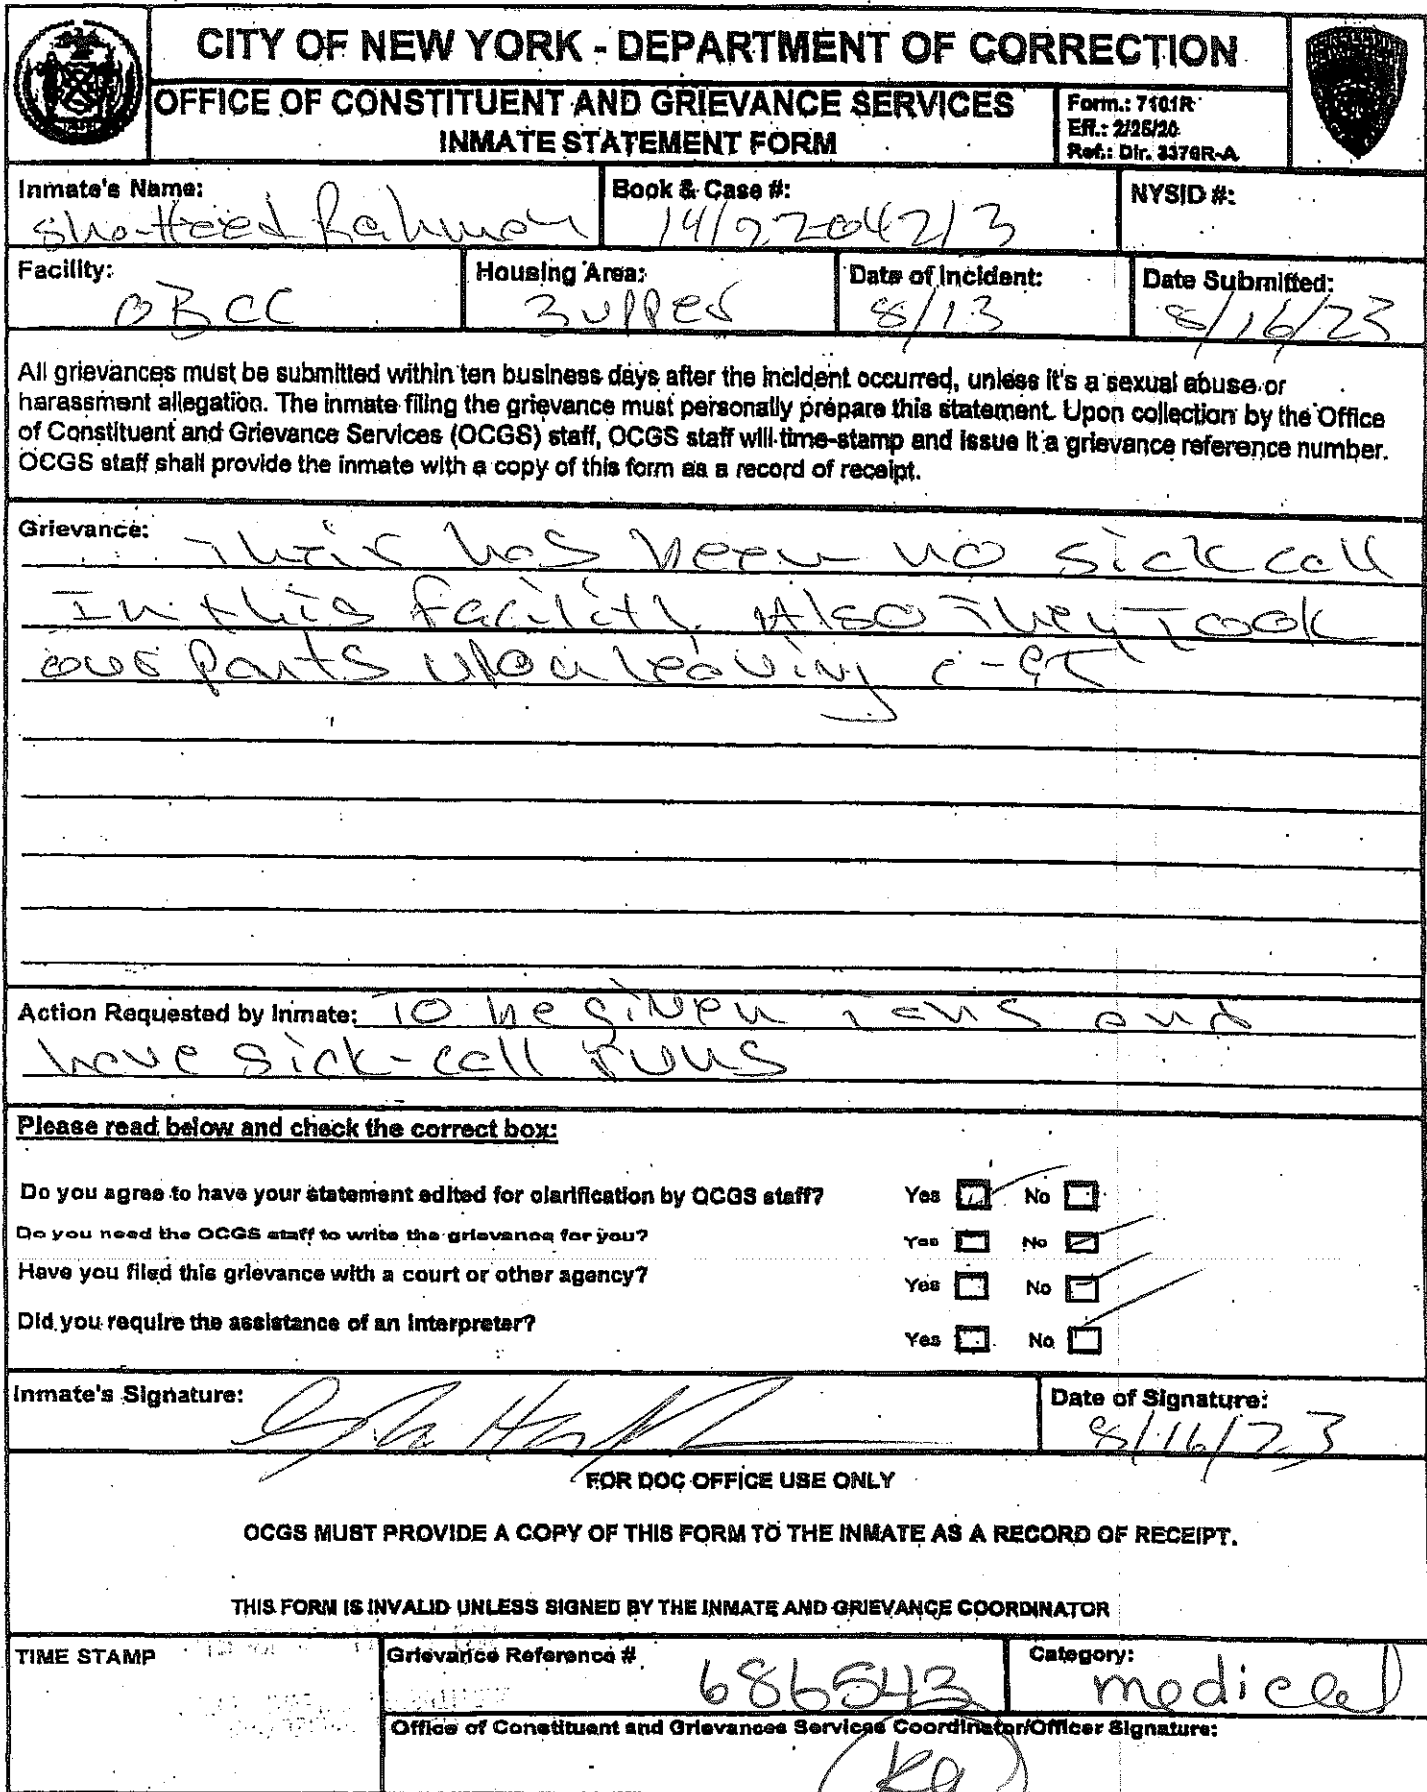 CITY OF NEW YORK - DEPARTMENT OF CORRECTION
OFFICE OF CONSTITUENT AND GRIEVANCE SERVICES
INMATE STATEMENT FORM
Form.: 7101R
Eff.: 2/26/20
Ref.: Dir. 3376R-A
Inmate's Name:
Book & Case #:
NYSID #:
Rahman
Facility:
Housing Area:
Date of Incident:
Date Submitted:
OBCC
3 upper
8/13
8/16/23
All grievances must be submitted within ten business days after the incident occurred, unless it's a sexual abuse or
harassment allegation. The inmate filing the grievance must personally prepare this statement. Upon collection by the Office
of Constituent and Grievance Services (OCGS) staff, OCGS staff will time-stamp and issue it a grievance reference number.
OCGS staff shall provide the inmate with a copy of this form as a record of receipt.
Grievance: Their has been no sick call
In this facility Also They Took
our Pants upon leaving
Action Requested by Inmate: To be given and
have sick-call runs
Please read below and check the correct box:
Do you agree to have your statement edited for clarification by OCGS staff? Yes No
Do you need the OCGS staff to write the grievance for you? Yes No
Have you filed this grievance with a court or other agency? Yes No
Did you require the assistance of an interpreter? Yes No
Inmate's Signature:
Date of Signature:
8/16/23
FOR DOC OFFICE USE ONLY
OCGS MUST PROVIDE A COPY OF THIS FORM TO THE INMATE AS A RECORD OF RECEIPT.
THIS FORM IS INVALID UNLESS SIGNED BY THE INMATE AND GRIEVANCE COORDINATOR
TIME STAMP
Grievance Reference # 686543
Category: medical
Office of Constituent and Grievances Services Coordinator/Officer Signature: